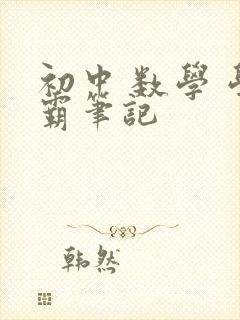 初中数學學
霸筆記
韩然